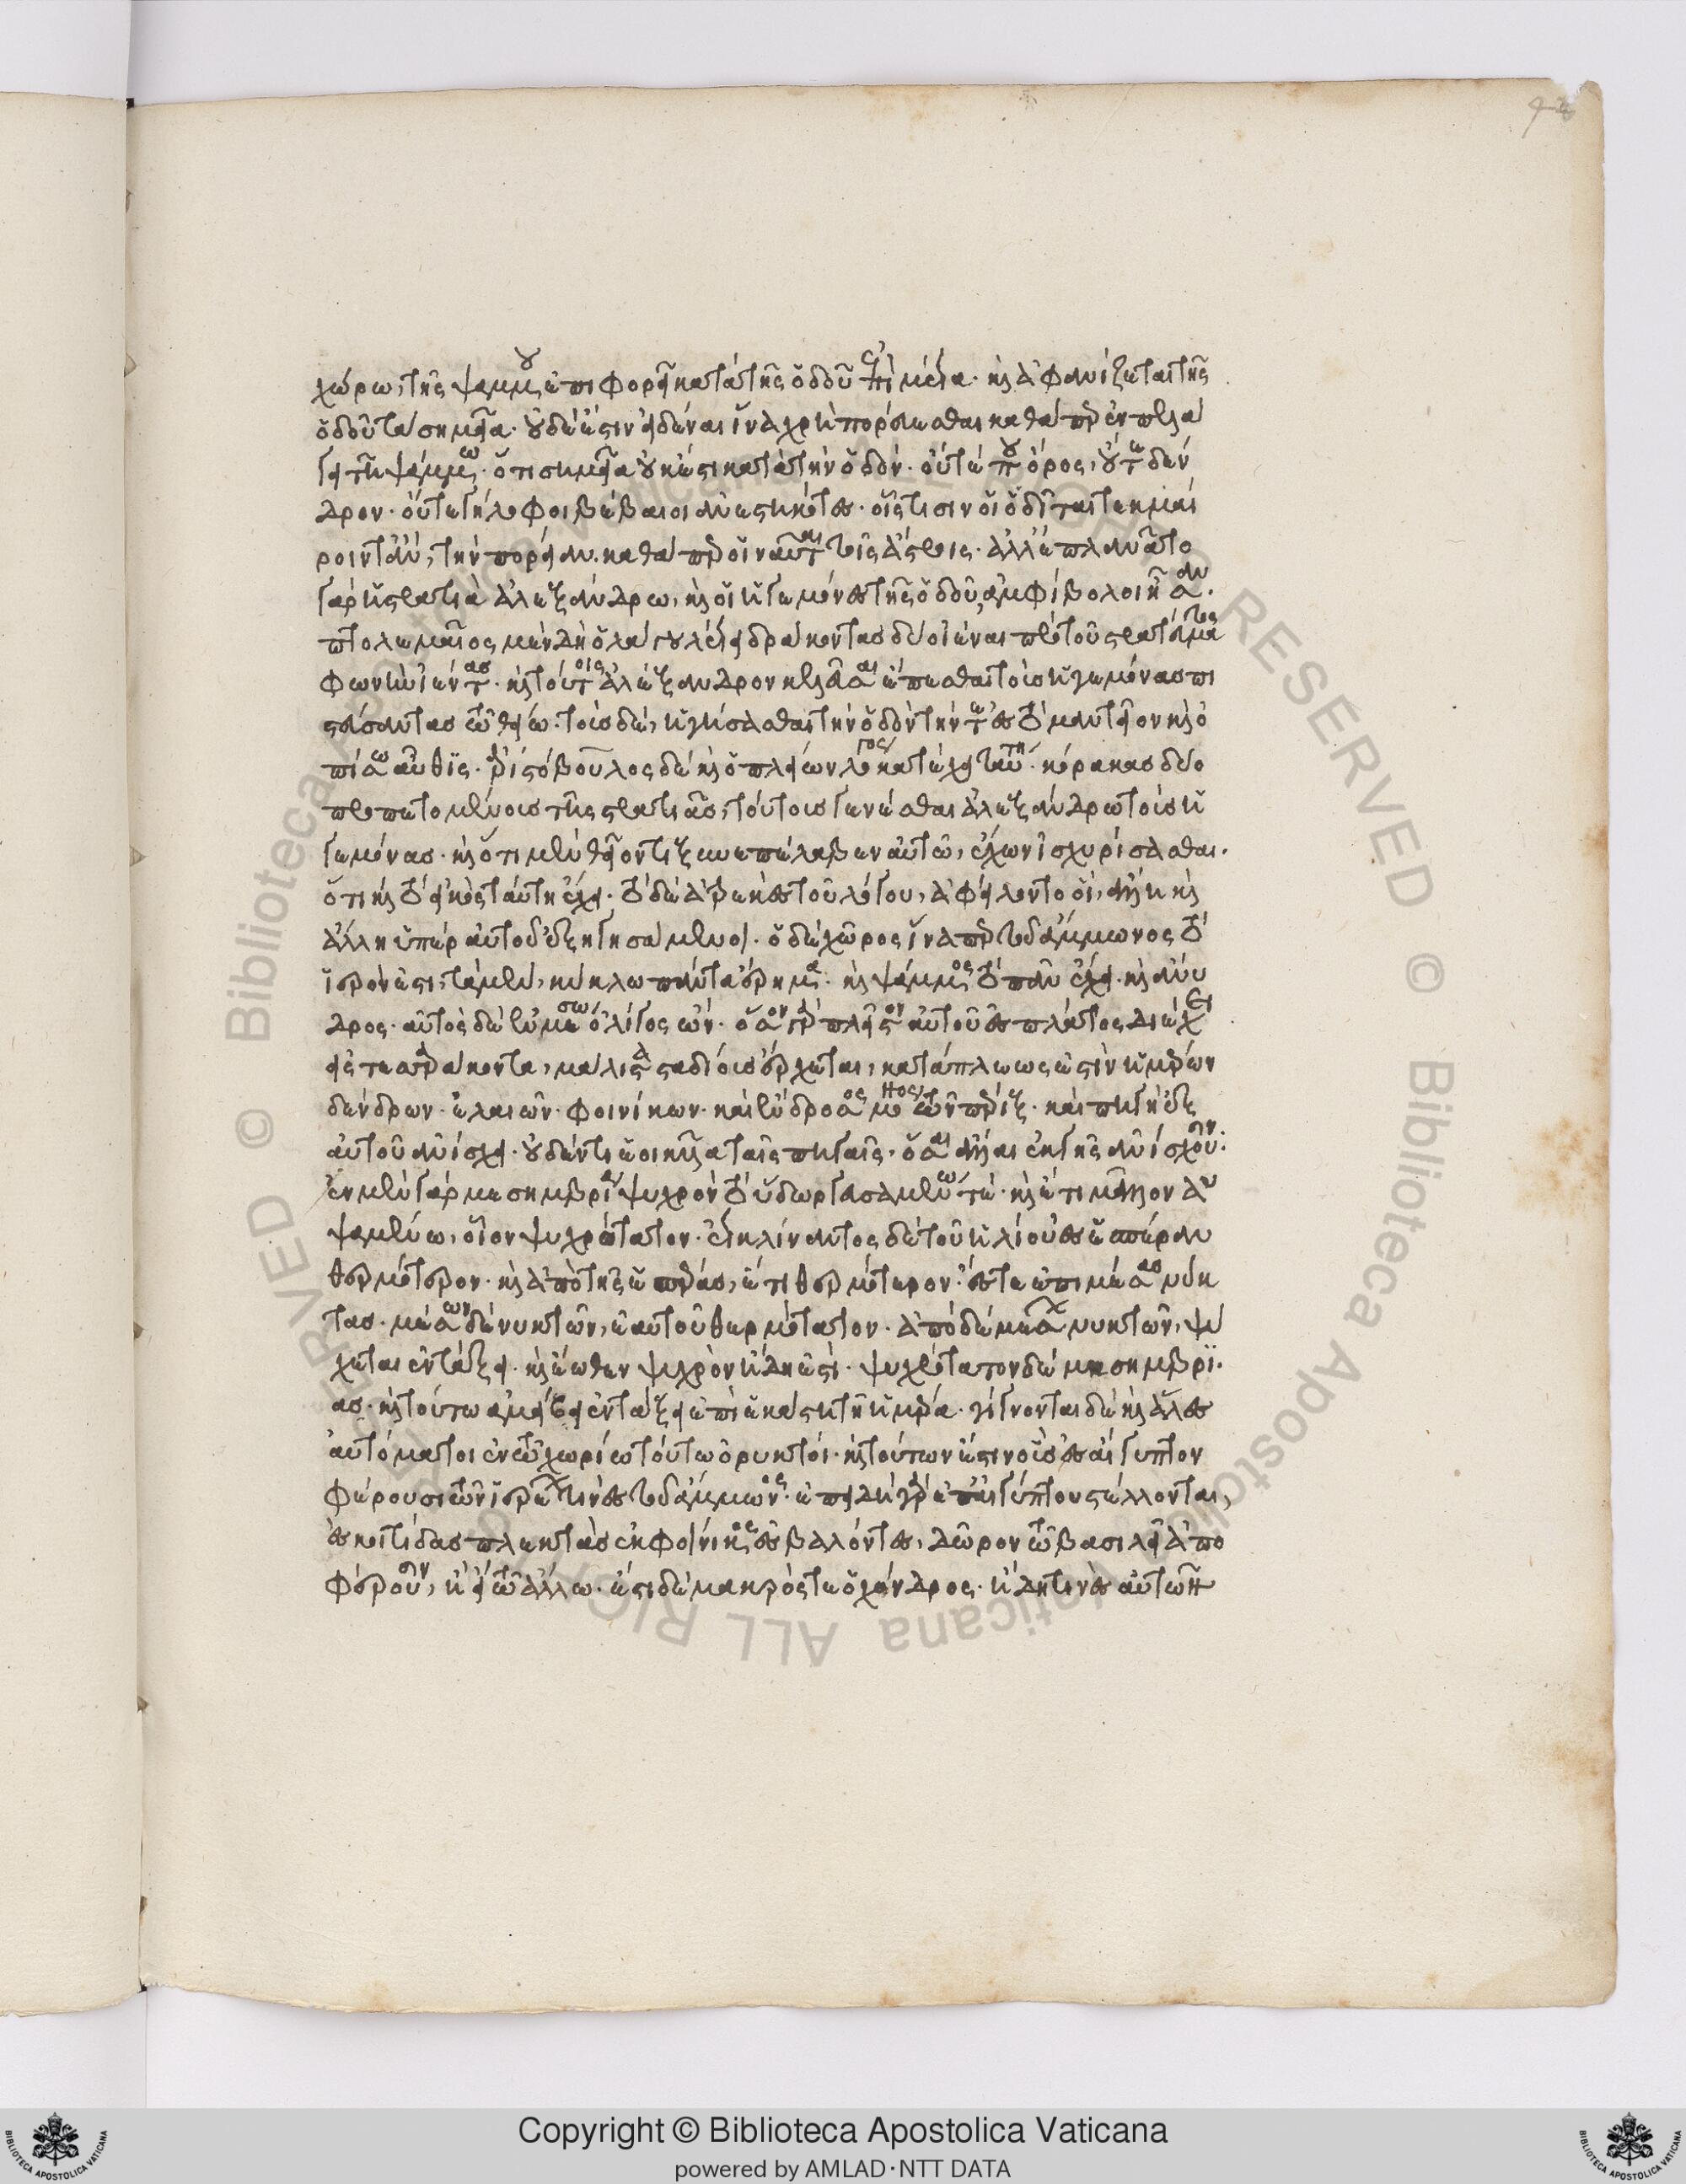 χώρω, τῆς ψάμμου ἐπιφορεῖ κατὰ τῆς ὁδοῦ ἐπὶ μέγα. καὶ ἀφανίζεται τῆς
ὁδοῦ τὰ σημεῖα. οὐδὲ ἔστιν εἰδέναι ἵνα χρὴ πορεύεσθαι καθάπερ ἐν πελά
γει τῆ ψάμμω. ὅτι σημεῖα οὐκ ἔστι κατὰ τὴν ὁδόν. οὔτέ που ὄρος, οὔτε δέν
δρον. οὔτε γήλοφοι βέβαιοι ἀνεστηκότες. οἷςτισιν οἱ ὁδῖται τεκμαί
ροιντο ἂν, τὴν πορείαν. καθάπερ οἱ ναῦται τοῖς ἄστροις. ἀλλ' ἐπλανᾶτο
γὰρ ἡ στρατιὰ ἀλεξάνδρω, καὶ οἱ ἡγεμόνες τῆς ὁδοῦ, ἀμφίβολοι ἦσαν.
πτολεμαῖος μὲν δὴ ὁ λάγου λέγει δράκοντας δύο ἰέναι πρὸ τοῦ στρατεύματος
φωνὴν ἱέντας. καὶ τούτοις ἀλέξανδρον κελεῦσαι ἕπεσθαι τοὺς ἡγεμόνας πι
στεύσαντας τῶ θείω. τοὺς δὲ, ἡγήσασθαι τὴν ὁδὸν τήν τε ἐς τὸ μαντεῖον καὶ ὀ
πίσω αὖθις. ἀριστόβουλος δὲ καὶ ὁ πλείων λόγος κατέχει ταύτη. κόρακας δύο
προπετομένους τῆς στρατιᾶς, τούτους γενέσθαι ἀλεξάνδρω τοὺς ἡ
γεμόνας. καὶ ὅτι μὲν θεῖόν τι ξυνεπέλαβεν αὐτῶ, ἔχων ἰσχυρίσασθαι.
ὅτι καὶ τὸ εἰκὸς ταύτη ἔχει. τὸ δὲ ἀτρεκὲς τοῦ λόγου, ἀφείλοντο οἱ, ἄλλη καὶ
ἄλλη ὑπὲρ αὐτοῦ ἐξηγησάμενοι. ὁ δὲ χῶρος ἵναπερ τοῦ ἄμμωνος τὸ
ἱερόν ἐστι, τὰ μὲν, κύκλω πάντα ἔρημα. καὶ ψάμμος τὸ πᾶν ἔχει. καὶ ἄνυ
δρος. αὐτὸς δὲ ἐν μέσω ὀλίγος ὤν. ὅσον γὰρ πλεῖστον αὐτοῦ ἐς πλάτος διέχει
εἰς τεσσαράκοντα, μάλιστα σταδίους ἔρχεται, κατάπλεώς ἐστιν ἡμέρων
δένδρων. ἐλαιῶν. φοινίκων. καὶ εὔδροσος μόνος τῶν πέριξ. καὶ πηγὴ ἐξ
αὐτοῦ ἀνίσχει. οὐδέν τι ἐοικυῖα ταῖς πηγαῖς. ὅσαι ἄλλαι ἐκ γῆς ἀνίσχουσιν.
ἐν μὲν γὰρ μεσημβρία ψυχρὸν τὸ ὕδωρ γευσαμένω τέ. καὶ ἔτι μᾶλλον ἁ
ψαμένω, οἷον ψυχρότατον. ἐγκλίναντος δὲ τοῦ ἡλίου ἐς ἑσπέραν
θερμότερον. καὶ ἀπὸ τῆς ἑσπέρας, ἔτι θερμότερον. ἔστε ἐπὶ μέσας νύκ
τας. μέσων δὲ νυκτῶν, ἑαυτοῦ θερμότατον. ἀπὸ δὲ μέσων νυκτῶν, ψύ
χεται ἐν τάξει. καὶ ἕωθεν ψυχρὸν ἤδη ἐστί. ψυχρότατον δὲ μεσημβρί
ας. καὶ τοῦτο ἀμείβει ἐν τάξει ἐπὶ ἑκάστη τῆ ἡμέρα. γίγνονται δὲ καὶ ἅλες
αὐτόματοι ἐν τῶ χωρίω τούτω ὀρυκτοί. καὶ τούτων ἔστιν οὓς ἐς αἴγυπτον
φέρουσι τῶν ἱερέων τινὲς τοῦ ἄμμωνος. ἐπειδὴ γὰρ ἐπ' αἰγύπτου στέλλονται,
ἐς κοιτίδας πλεκτὰς ἐκ φοίνικος ἐσβαλόντες, δῶρον τῶ βασιλεῖ ἀπο
φέρουσιν, ἢ εἴ τω ἄλλω. ἔστι δὲ μακρός τε ὁ χόνδρος. ἤδη τινὲς αὐτῶν